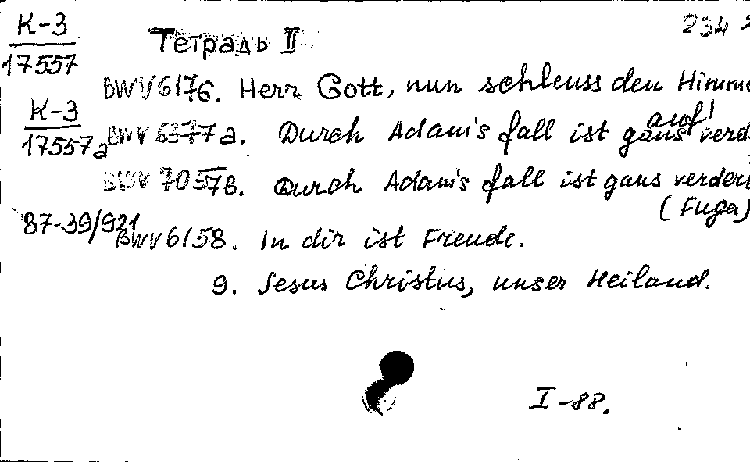 К-3
17557
Тетрадь II
234
BWV 617 6. Herr Gott, nun schleuss den Himme
auf!
К-3
17557а
BWV 637 7a. Durch Adam's fall ist gans verd
BWV 705 7в. Durch Adam's fall ist gans verder
(Fuga)
87-39/921
BWV 615 8. In dir ist Freude.
9. Jesus Christus, unser Heiland.
I-88.